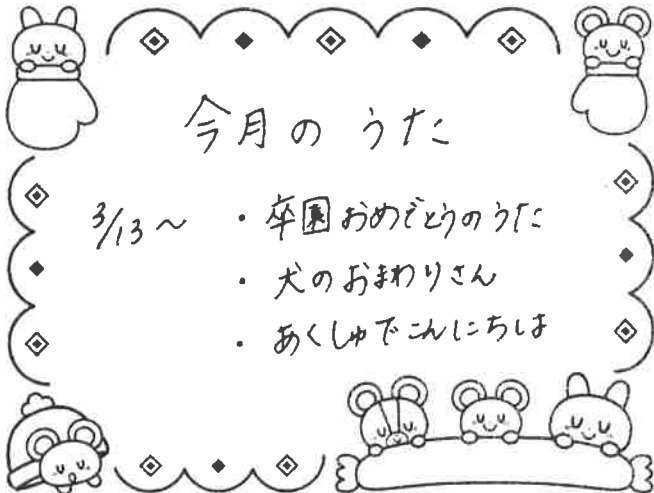 今月のうた
3/13～ ・卒園おめでとうのうた
・犬のおまわりさん
・あくしゅでこんにちは